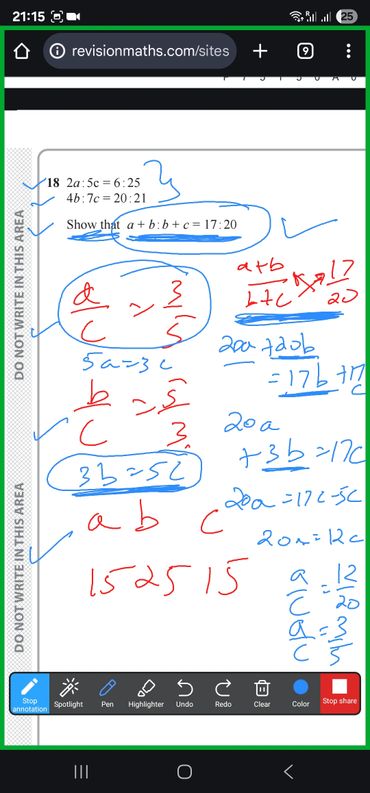 21:15 25
revisionmaths.com/sites + 9
DO NOT WRITE IN THIS AREA
18 2a : 5c = 6 : 25
4b : 7c = 20 : 21
Show that a + b : b + c = 17 : 20
a/c = 3/5
5a = 3c
b/c = 5/3
3b = 5c
a b c
15 25 15
a+b/b+c 17/20
20a + 20b
= 17b + 17c
20a
+ 3b = 17c
20a = 17c - 5c
20a = 12c
a/c = 12/20
a/c = 3/5
DO NOT WRITE IN THIS AREA
Stop annotation Spotlight Pen Highlighter Undo Redo Clear Color Stop share